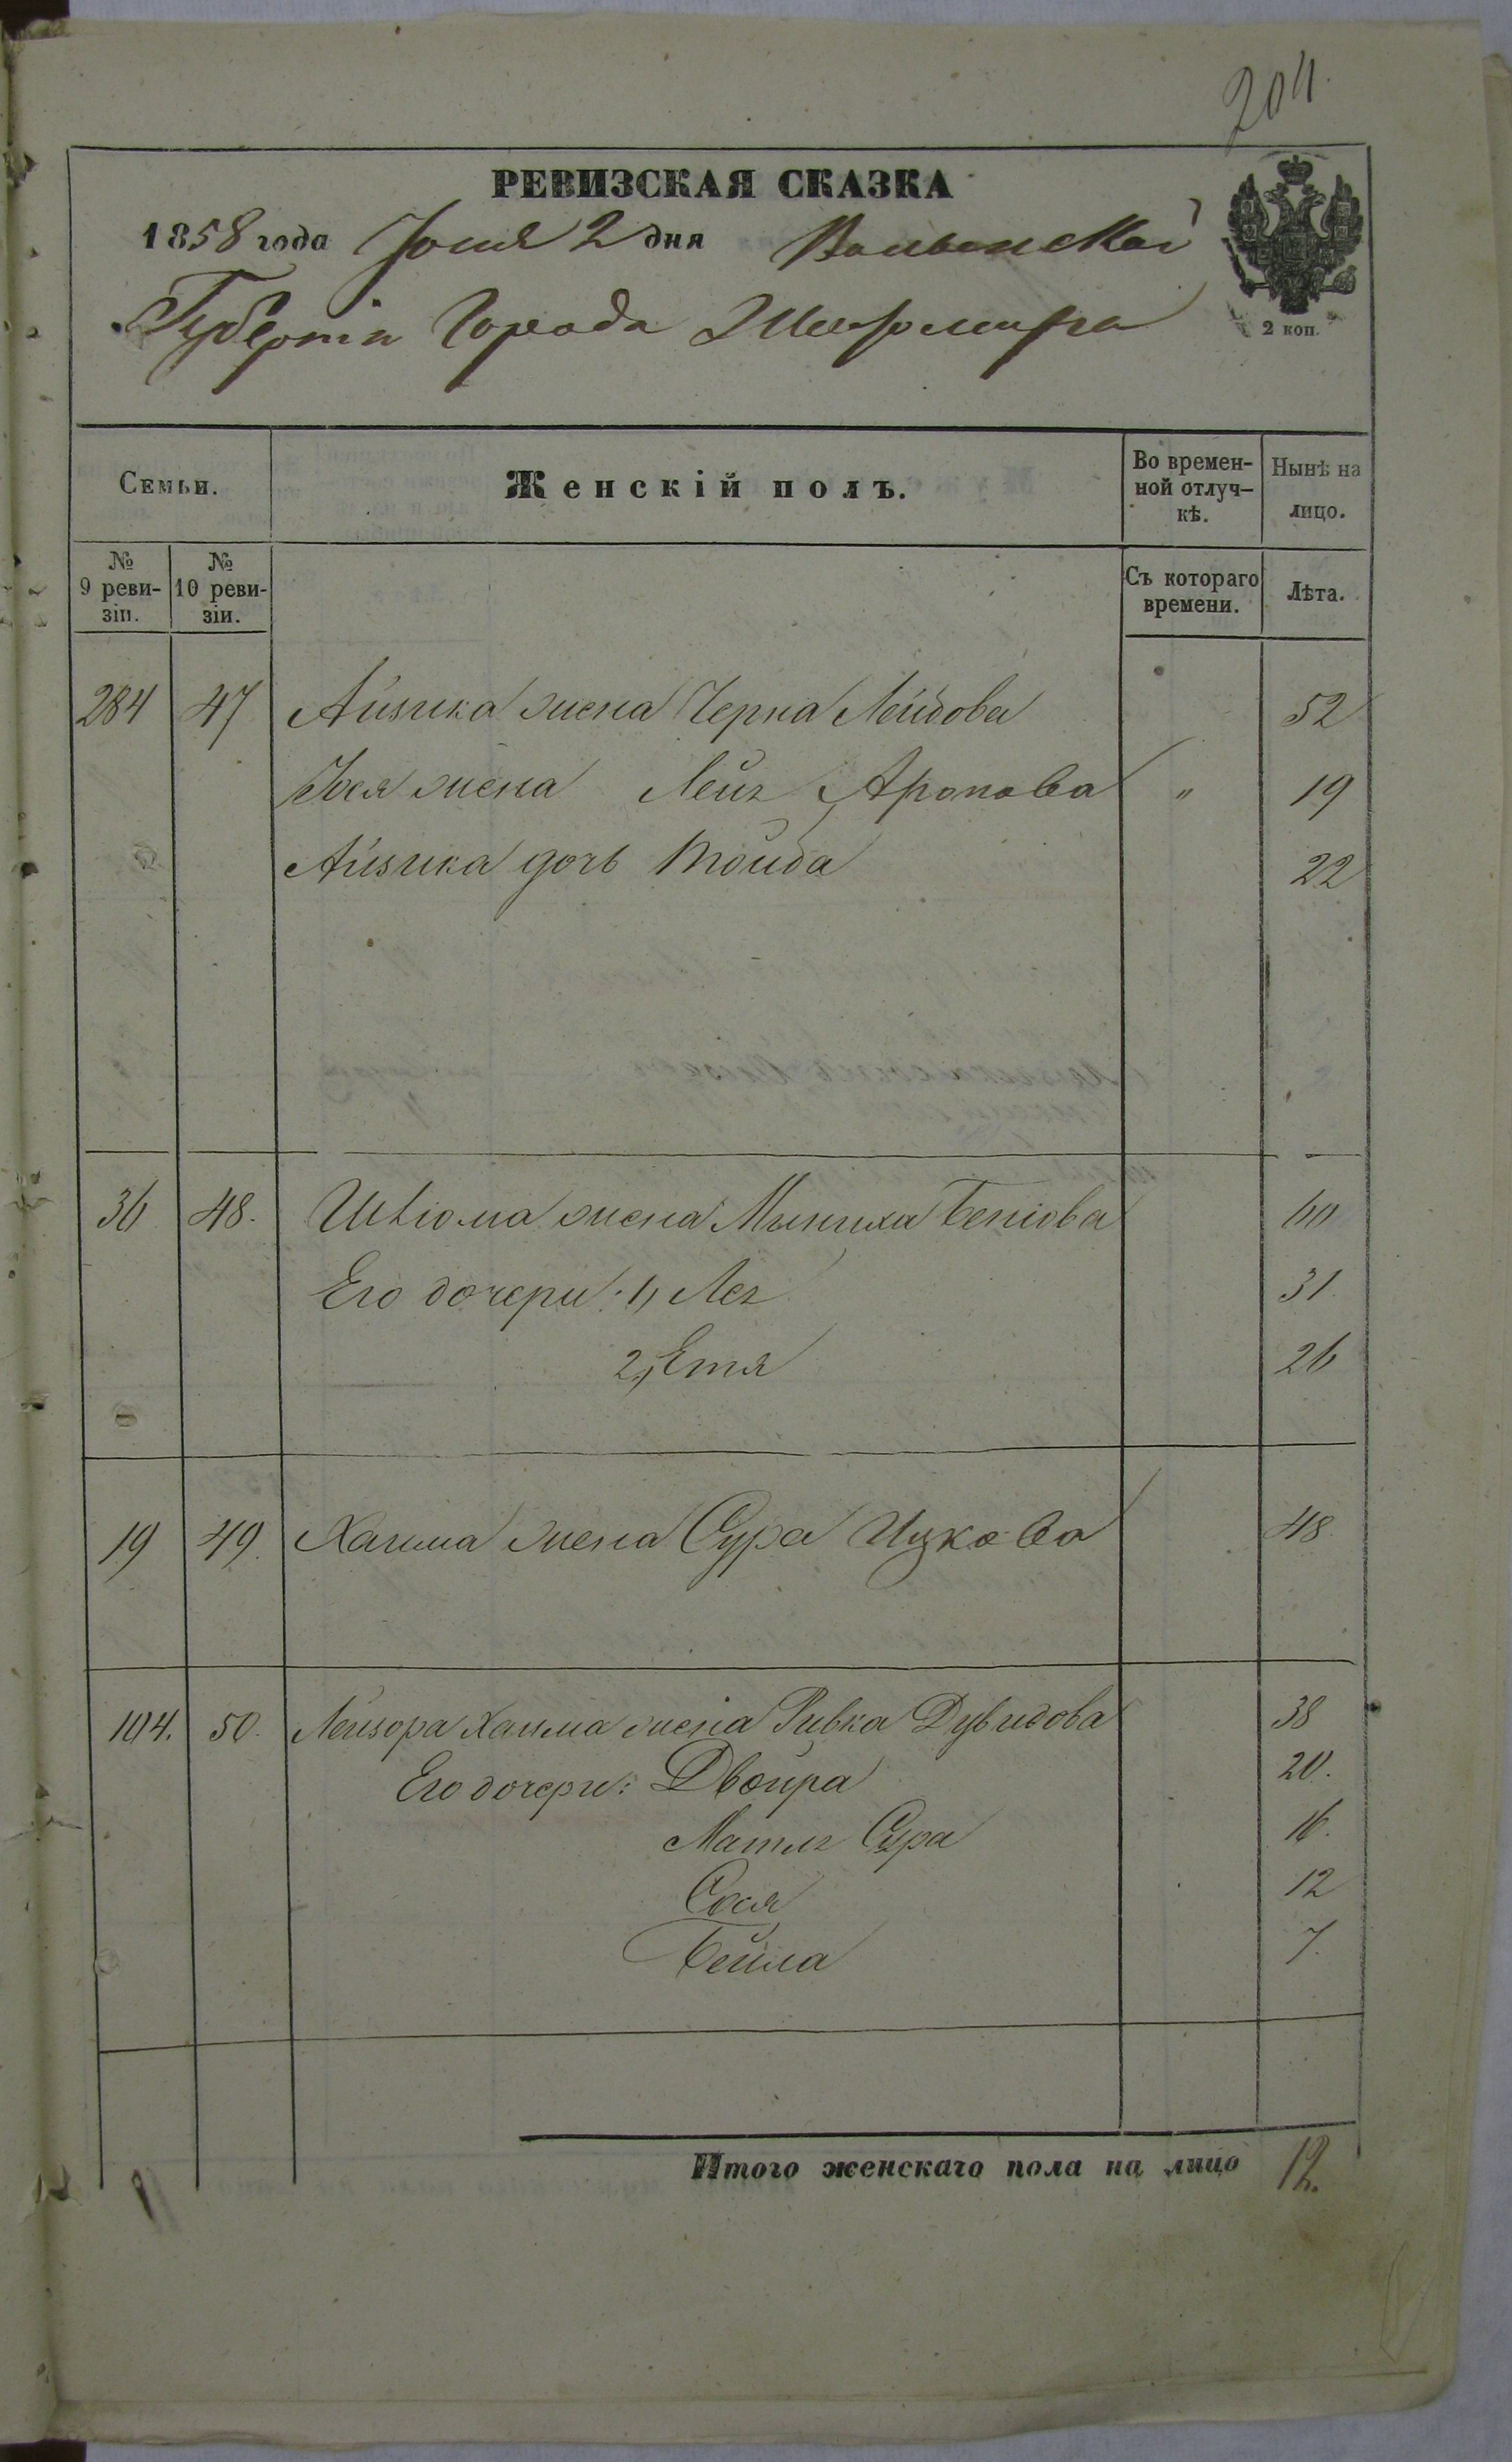 204
РЕВИЗСКАЯ СКАЗКА
1858 года Іюня 2 дня Волынской
2 коп.
Губерніи Города Житомира
Семьи.
Женскій полъ.
Во времен-
ной отлуч-
кѣ.
Нынѣ на
лицо.
№
9 реви-
зіи.
№
10 реви-
зіи.
Съ котораго
времени.
Лѣта.
284 47 Айзика жена Черна Лейбова 52
Іося жена Лея Аронова " 19
Айзика дочь Тойба 22
36 48. Шліома жена Мыниха Беніова 60
Его дочери: 1, Лея 31.
2, Етя 26
19 49. Хаима жена Сура Ицкова 48
104. 50. Лейзора Хаима жена Ривка Дувидова 38
Его дочери: Двойра 20.
Матля Сура 16.
Сося 12
Бейла 7.
Итого женскаго пола на лицо 12.